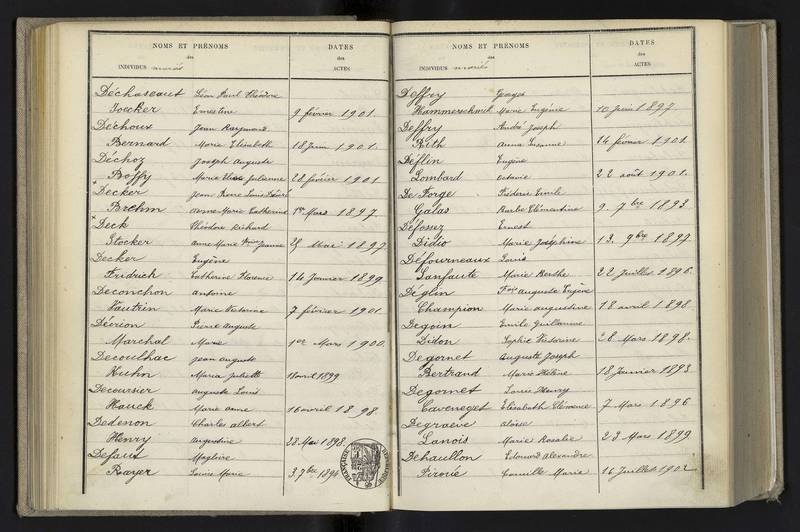 NOMS ET PRÉNOMS
des
INDIVIDUS mariés
DATES
des
ACTES
Déchaseaut Léon Paul Théodore
Joecker Ernestine 9 février 1901.
Déchoux Jean Raymond
Bernard Marie Elisabeth 18 Juin 1901.
Déchoz Joseph Auguste
Boffy Marie Julienne 28 février 1901.
Decker Jean Pierre Louis
Brehm Anne Marie Catherine 1er Mars 1897.
Deck Théodore Richard
Stocker Anne Marie Jeanne 25 Mai 1897
Decker Eugène
Fridrich Catherine Florence 14 Janvier 1899.
Deconchon Antoine
Vautrin Marie Victorine 7 février 1901.
Décrion Pierre Auguste
Marchal Marie 1er Mars 1900.
Decoulhac Jean Auguste
Kuhn Maria Juliette avril 1899
Decoursier Auguste Louis
Hauck Marie Anne 16 avril 1898.
Dedenon Charles Albert
Henry Augustine 28 Mai 1898.
Defaux Magloire
Rayer Louise Marie 3. 7bre 1898
NOMS ET PRÉNOMS
des
INDIVIDUS mariés
DATES
des
ACTES
Deffry Georges
Hammerschmidt Marie Eugénie 10 Juin 1897.
Deffry André Joseph
Rith Anna Suzanne 14 février 1901.
Déflin Eugène
Lombard Octavie 22 août 1901.
De Forge Fréderic Emile
Galas Barbe Clémentine 9. 7bre 1893.
Défossez Ernest
Didio Marie Joséphine 13. 9bre 1897.
Défourneaux Louis
Sanfaute Marie Berthe 22 Juillet 1896.
Déglin Auguste Eugène
Champion Marie Augustine 18 avril 1898
Degoin Emile Guillaume
Didon Sophie Victorine 28 Mars 1898.
Degornet Auguste Joseph
Bertrand Marie Hélène 18 Janvier 1893.
Degornet Louis Henry
Caveneget Elisabeth Clémence 7 Mars 1896
Degraeve Aloïse
Lanois Marie Rosalie 23 Mars 1899.
Dehaullon Edouard Alexandre
Pironié Camille Marie 16 Juillet 1902